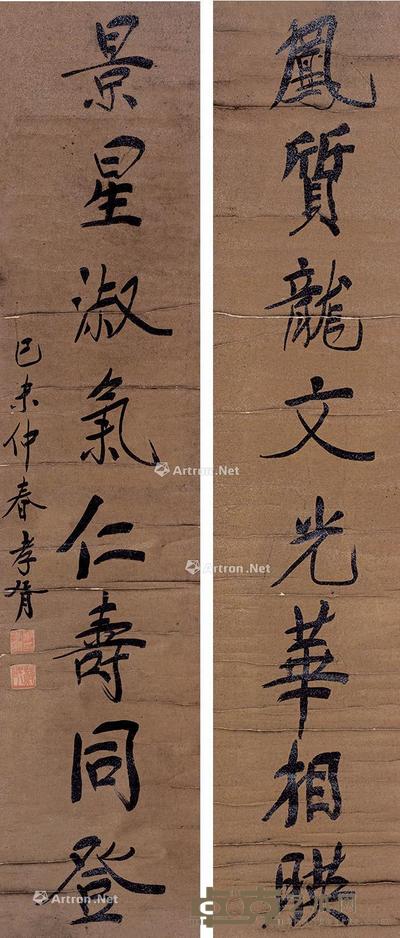 鳳質龍文光華相暎
景星淑氣仁壽同登
己未仲春孝胥
Artron.Net
Artron.Net
Artron.Net